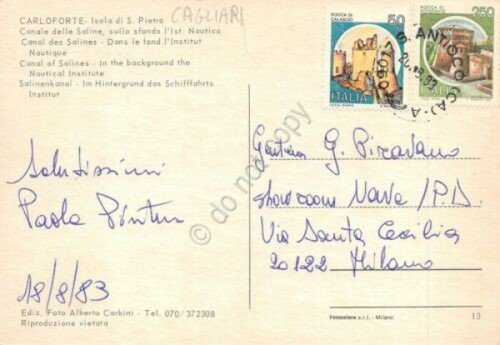 CARLOFORTE - Isola di S. Pietro
CAGLIARI
Canale delle Saline, sullo sfondo l'Ist. Nautico
Canal des Salines - Dans le fond l'Institut
Nautique
Canal of Salines - In the background the
Nautical Institute
Salinenkanal - Im Hintergrund das Schifffahrts
Institut
ROCCA DI
CALASCIO
50
ITALIA
250
ITALIA
S. ANTIOCO (CA) - A
09017
Salutissimi
Paola
18/8/83
G. Piravano
show room Nava / P.D.
Via Santa Cecilia
20122 Milano
© do not copy
Ediz. Foto Alberto Carbini - Tel. 070/372308
Riproduzione vietata
Fotocolore s.r.l. - Milano
13